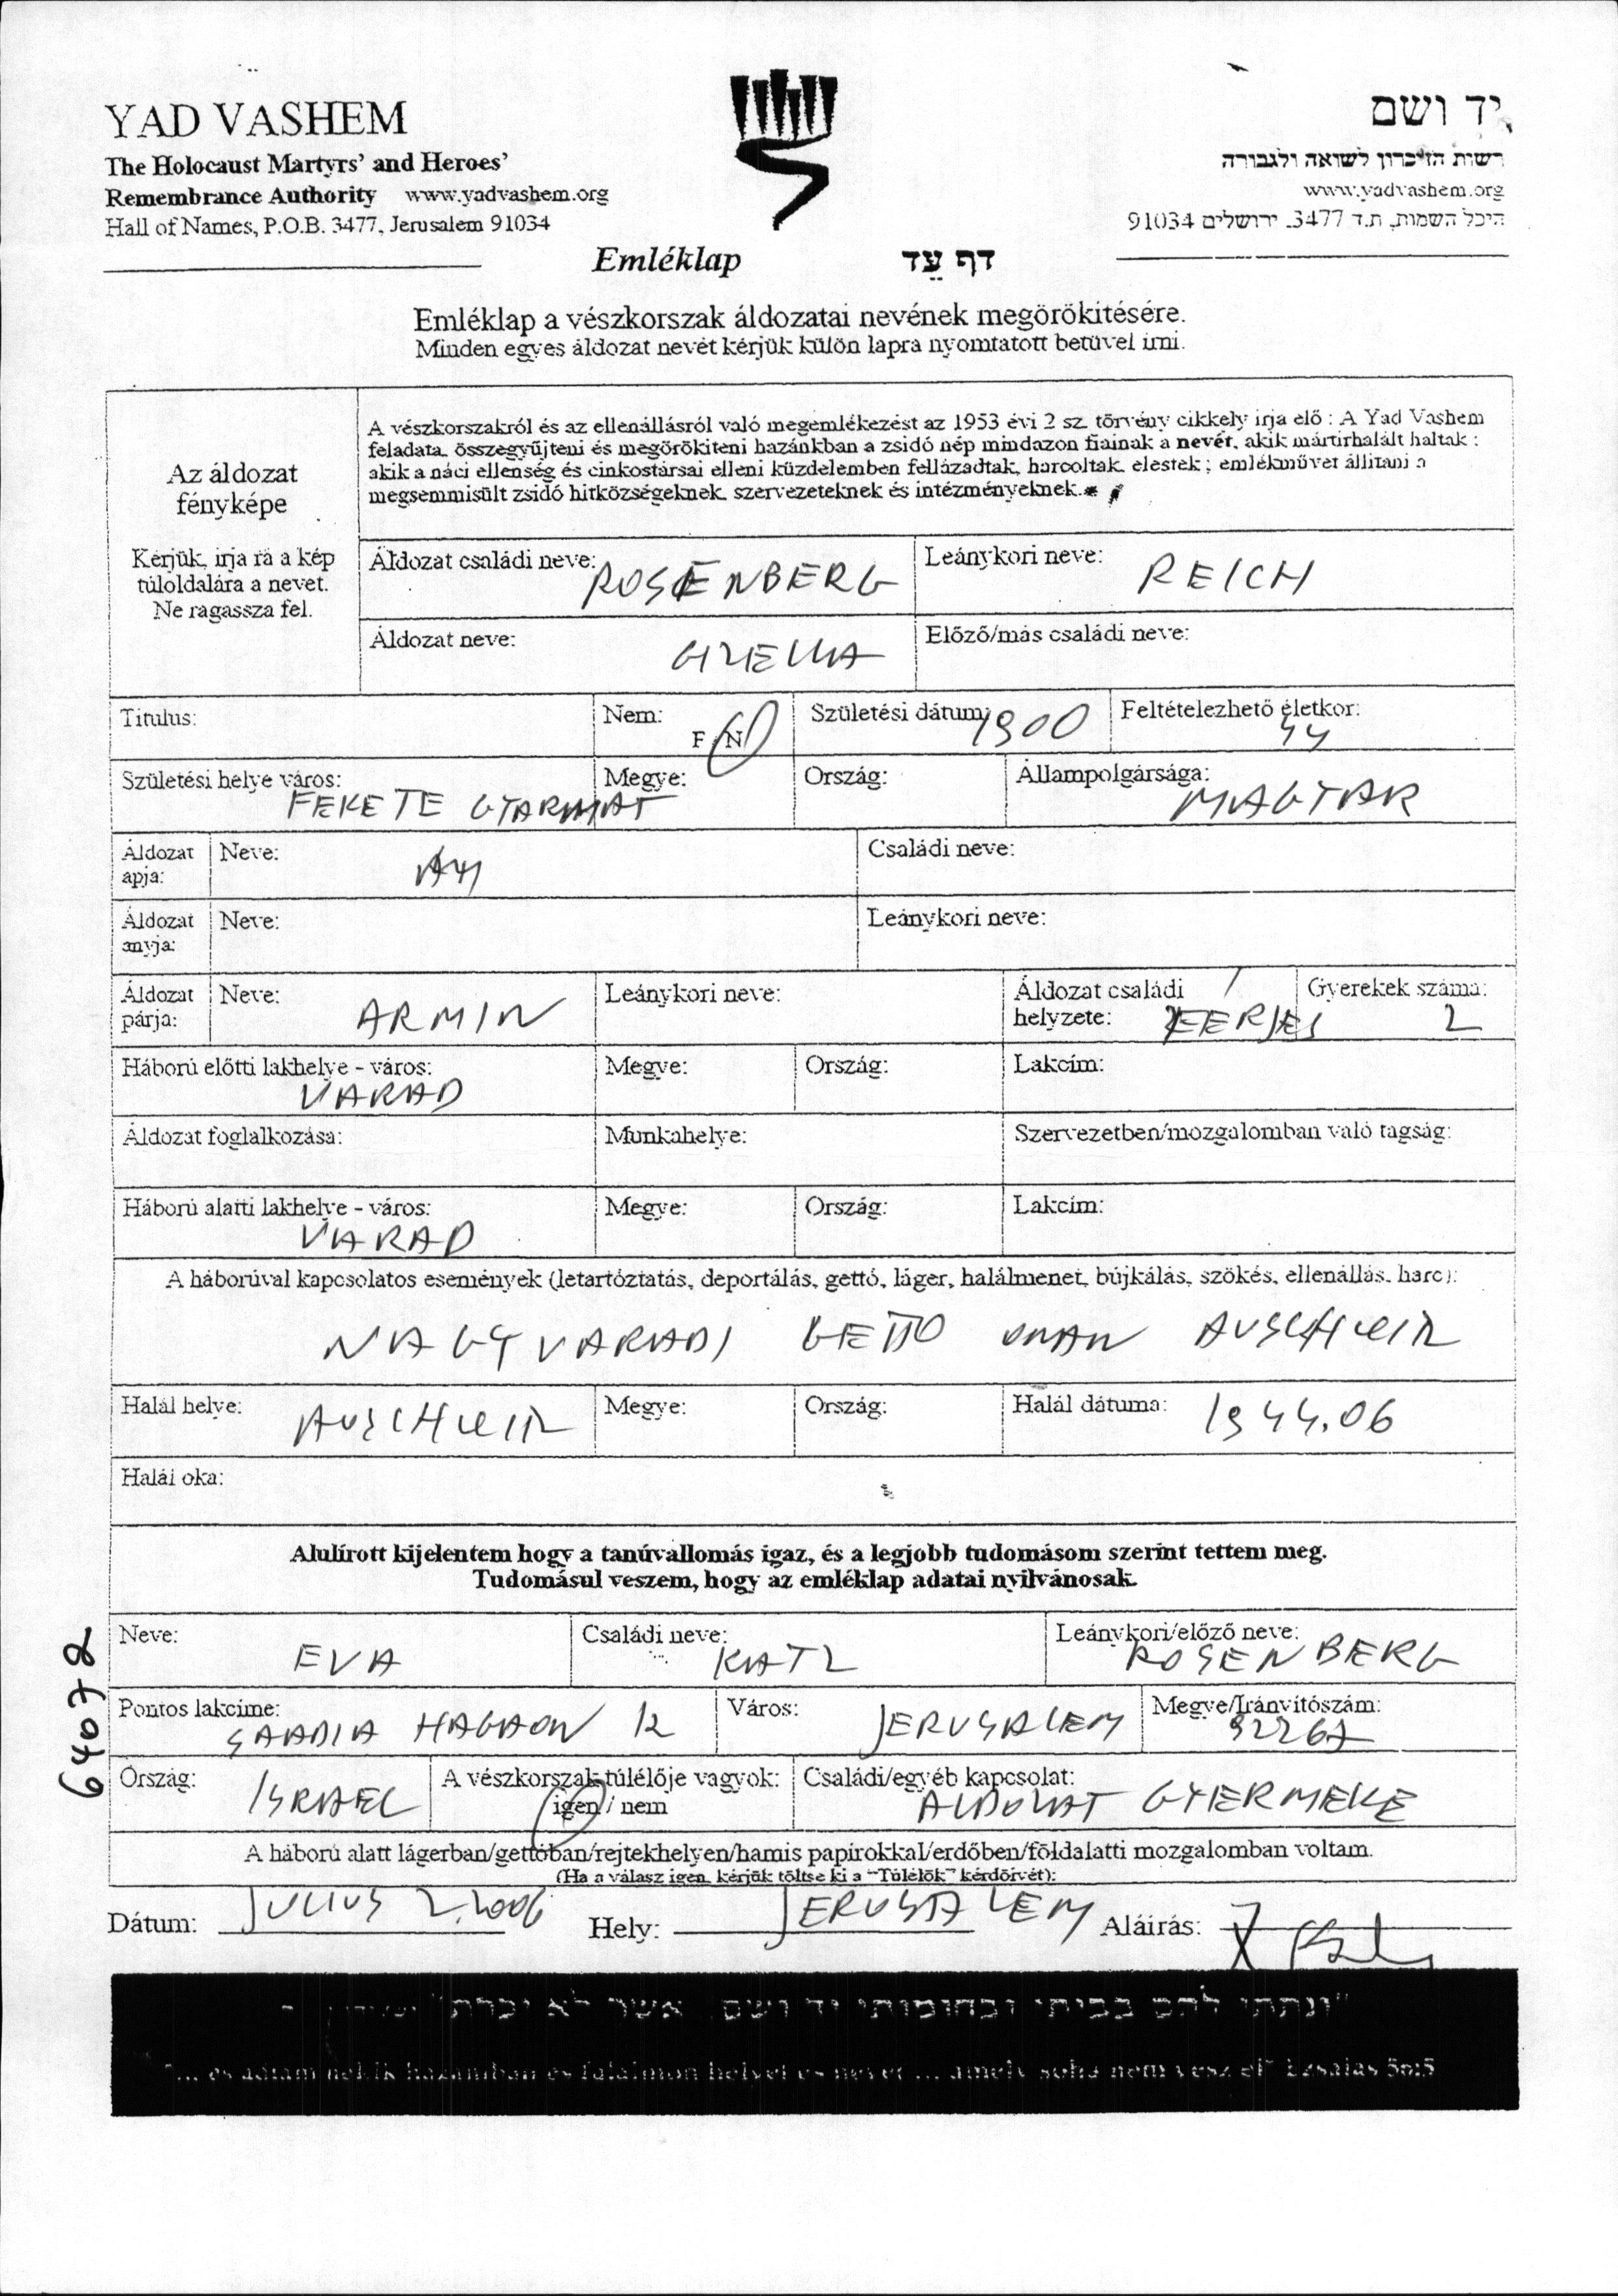 YAD VASHEM
The Holocaust Martyrs' and Heroes'
Remembrance Authority www.yadvashem.org
Hall of Names, P.O.B. 3477, Jerusalem 91034
יד ושם
רשות הזיכרון לשואה ולגבורה
www.yadvashem.org
היכל השמות, ת.ד 3477. ירושלים 91034
Emléklap דף עֵד
Emléklap a vészkorszak áldozatai nevének megörökitésére.
Minden egyes áldozat nevét kérjük külön lapra nyomtatott betűvel irni.
Az áldozat
fényképe
Kérjük, irja rá a kép
túloldalára a nevet.
Ne ragassza fel.
A vészkorszakról és az ellenállásról való megemlékezést az 1953 évi 2 sz. törvény cikkely irja elő : A Yad Vashem
feladata összegyűjteni és megörökiteni hazánkban a zsidó nép mindazon fiainak a nevét, akik mártirhalált haltak :
akik a náci ellenség és cinkostársai elleni küzdelemben fellázadtak, harcoltak elestek ; emlékművet állitani a
megsemmisült zsidó hitközségeknek szervezeteknek és intézményeknek.
Áldozat családi neve: ROSENBERG Leánykori neve: REICH
Áldozat neve: GIZELLA Előző/más családi neve:
Titulus: Nem: F / N Születési dátum: 1900 Feltételezhető életkor: 44
Születési helye város: FEKETE GYARMAT Megye: Ország: Állampolgársága: MAGYAR
Áldozat apja: Neve: Családi neve:
Áldozat anyja: Neve: Leánykori neve:
Áldozat párja: Neve: ARMIN Leánykori neve: Áldozat családi helyzete: FERJES Gyerekek száma: 2
Háború előtti lakhelye - város: VARAD Megye: Ország: Lakcím:
Áldozat foglalkozása: Munkahelye: Szervezetben/mozgalomban való tagság:
Háború alatti lakhelye - város: VARAD Megye: Ország: Lakcím:
A háborúval kapcsolatos események (letartóztatás, deportálás, gettó, láger, halálmenet, bújkálás, szökés, ellenállás, harc):
NAGYVARADI GETTO UTAN AUSCHWITZ
Halál helye: AUSCHWITZ Megye: Ország: Halál dátuma: 1944.06
Halál oka:
Alulírott kijelentem hogy a tanúvallomás igaz, és a legjobb tudomásom szerint tettem meg.
Tudomásul veszem, hogy az emléklap adatai nyilvánosak.
Neve: EVA Családi neve: KATZ Leánykori/előző neve: ROSENBERG
Pontos lakcíme: SAADIA HAGAON 12 Város: JERUSALEM Megye/Irányítószám: 92267
Ország: ISRAEL A vészkorszak túlélője vagyok: igen / nem Családi/egyéb kapcsolat: ALDOZAT GYERMEKE
A háború alatt lágerban/gettóban/rejtekhelyen/hamis papirokkal/erdőben/földalatti mozgalomban voltam.
(Ha a válasz igen, kérjük töltse ki a "Túlélők" kérdőívét):
Dátum: JULIUS 2.2006 Hely: JERUSALEM Aláirás:
"ונתתי להם בביתי ובחומותי יד ושם... אשר לא יכרת"
"... és adtam nekik házamban és falaimon helyet és nevet ... amely soha nem vesz el" Ézsaiás 56:5
64078